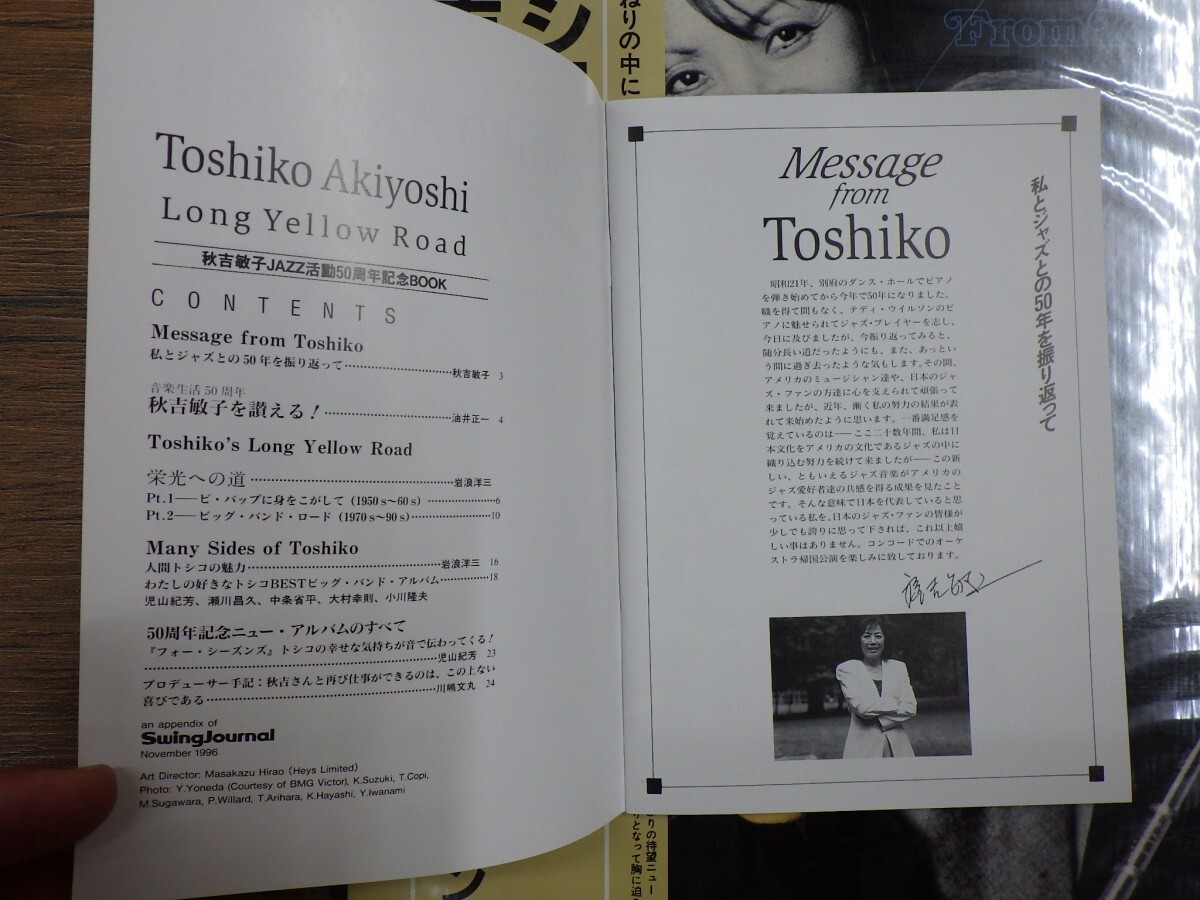 Toshiko Akiyoshi
Long Yellow Road
秋吉敏子JAZZ活動50周年記念BOOK
CONTENTS
Message from Toshiko
私とジャズとの50年を振り返って……………………秋吉敏子 3
音楽生活50周年
秋吉敏子を讃える！……………………油井正一 4
Toshiko's Long Yellow Road
栄光への道……………………岩浪洋三
Pt.1──ビ・バップに身をこがして（1950s～60s）……………6
Pt.2──ビッグ・バンド・ロード（1970s～90s）……………10
Many Sides of Toshiko
人間トシコの魅力……………………岩浪洋三 16
わたしの好きなトシコBESTビッグ・バンド・アルバム…………18
児山紀芳、瀬川昌久、中条省平、大村幸則、小川隆夫
50周年記念ニュー・アルバムのすべて
『フォー・シーズンズ』トシコの幸せな気持ちが音で伝わってくる！
……………………児山紀芳 23
プロデューサー手記：秋吉さんと再び仕事ができるのは、この上ない
喜びである……………………川嶋文丸 24
an appendix of
SwingJournal
November 1996
Art Director: Masakazu Hirao (Heys Limited)
Photo: Y.Yoneda (Courtesy of BMG Victor), K.Suzuki, T.Copi,
M.Sugawara, P.Willard, T.Arihara, K.Hayashi, Y.Iwanami
Message
from
Toshiko
私とジャズとの50年を振り返って
昭和21年、別府のダンス・ホールでピアノ
を弾き始めてから今年で50年になりました。
職を得て間もなく、テディ・ウイルソンのピ
アノに魅せられてジャズ・プレイヤーを志し、
今日に及びましたが、今振り返ってみると、
随分長い道だったようにも、また、あっとい
う間に過ぎ去ったような気もします。その間、
アメリカのミュージシャン達や、日本のジャ
ズ・ファンの方達に心を支えられて頑張って
来ましたが、近年、漸く私の努力の結果が表
れて来始めたように思います。一番満足感を
覚えているのは──ここ二十数年間、私は日
本文化をアメリカの文化であるジャズの中に
織り込む努力を続けて来ましたが──この新
しい、ともいえるジャズ音楽がアメリカの
ジャズ愛好者達の共感を得る成果を見たこと
です。そんな意味で日本を代表していると思
っている私を、日本のジャズ・ファンの皆様が
少しでも誇りに思って下されば、これ以上嬉
しい事はありません。コンコードでのオーケ
ストラ帰国公演を楽しみに致しております。
秋吉敏子
ねりの中に
From
りの待望ニュー
りとなって胸に迫